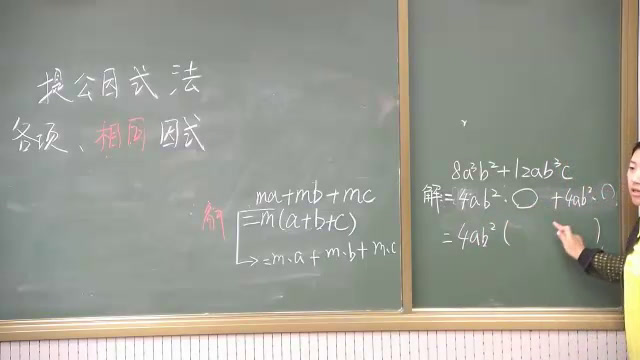 提公因式法
各项、相同因式
ma+mb+mc
解=m(a+b+c)
→=m·a+m·b+m·c
8a²b²+12ab³c
解=4ab²·○+4ab²·○
=4ab²( )